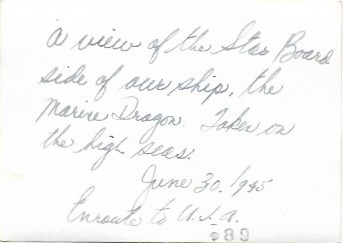 A view of the Star Board
side of our ship, the
Marine Dragon. Taken on
the high seas.
June 30, 1945
Enroute to U.S.A.
089